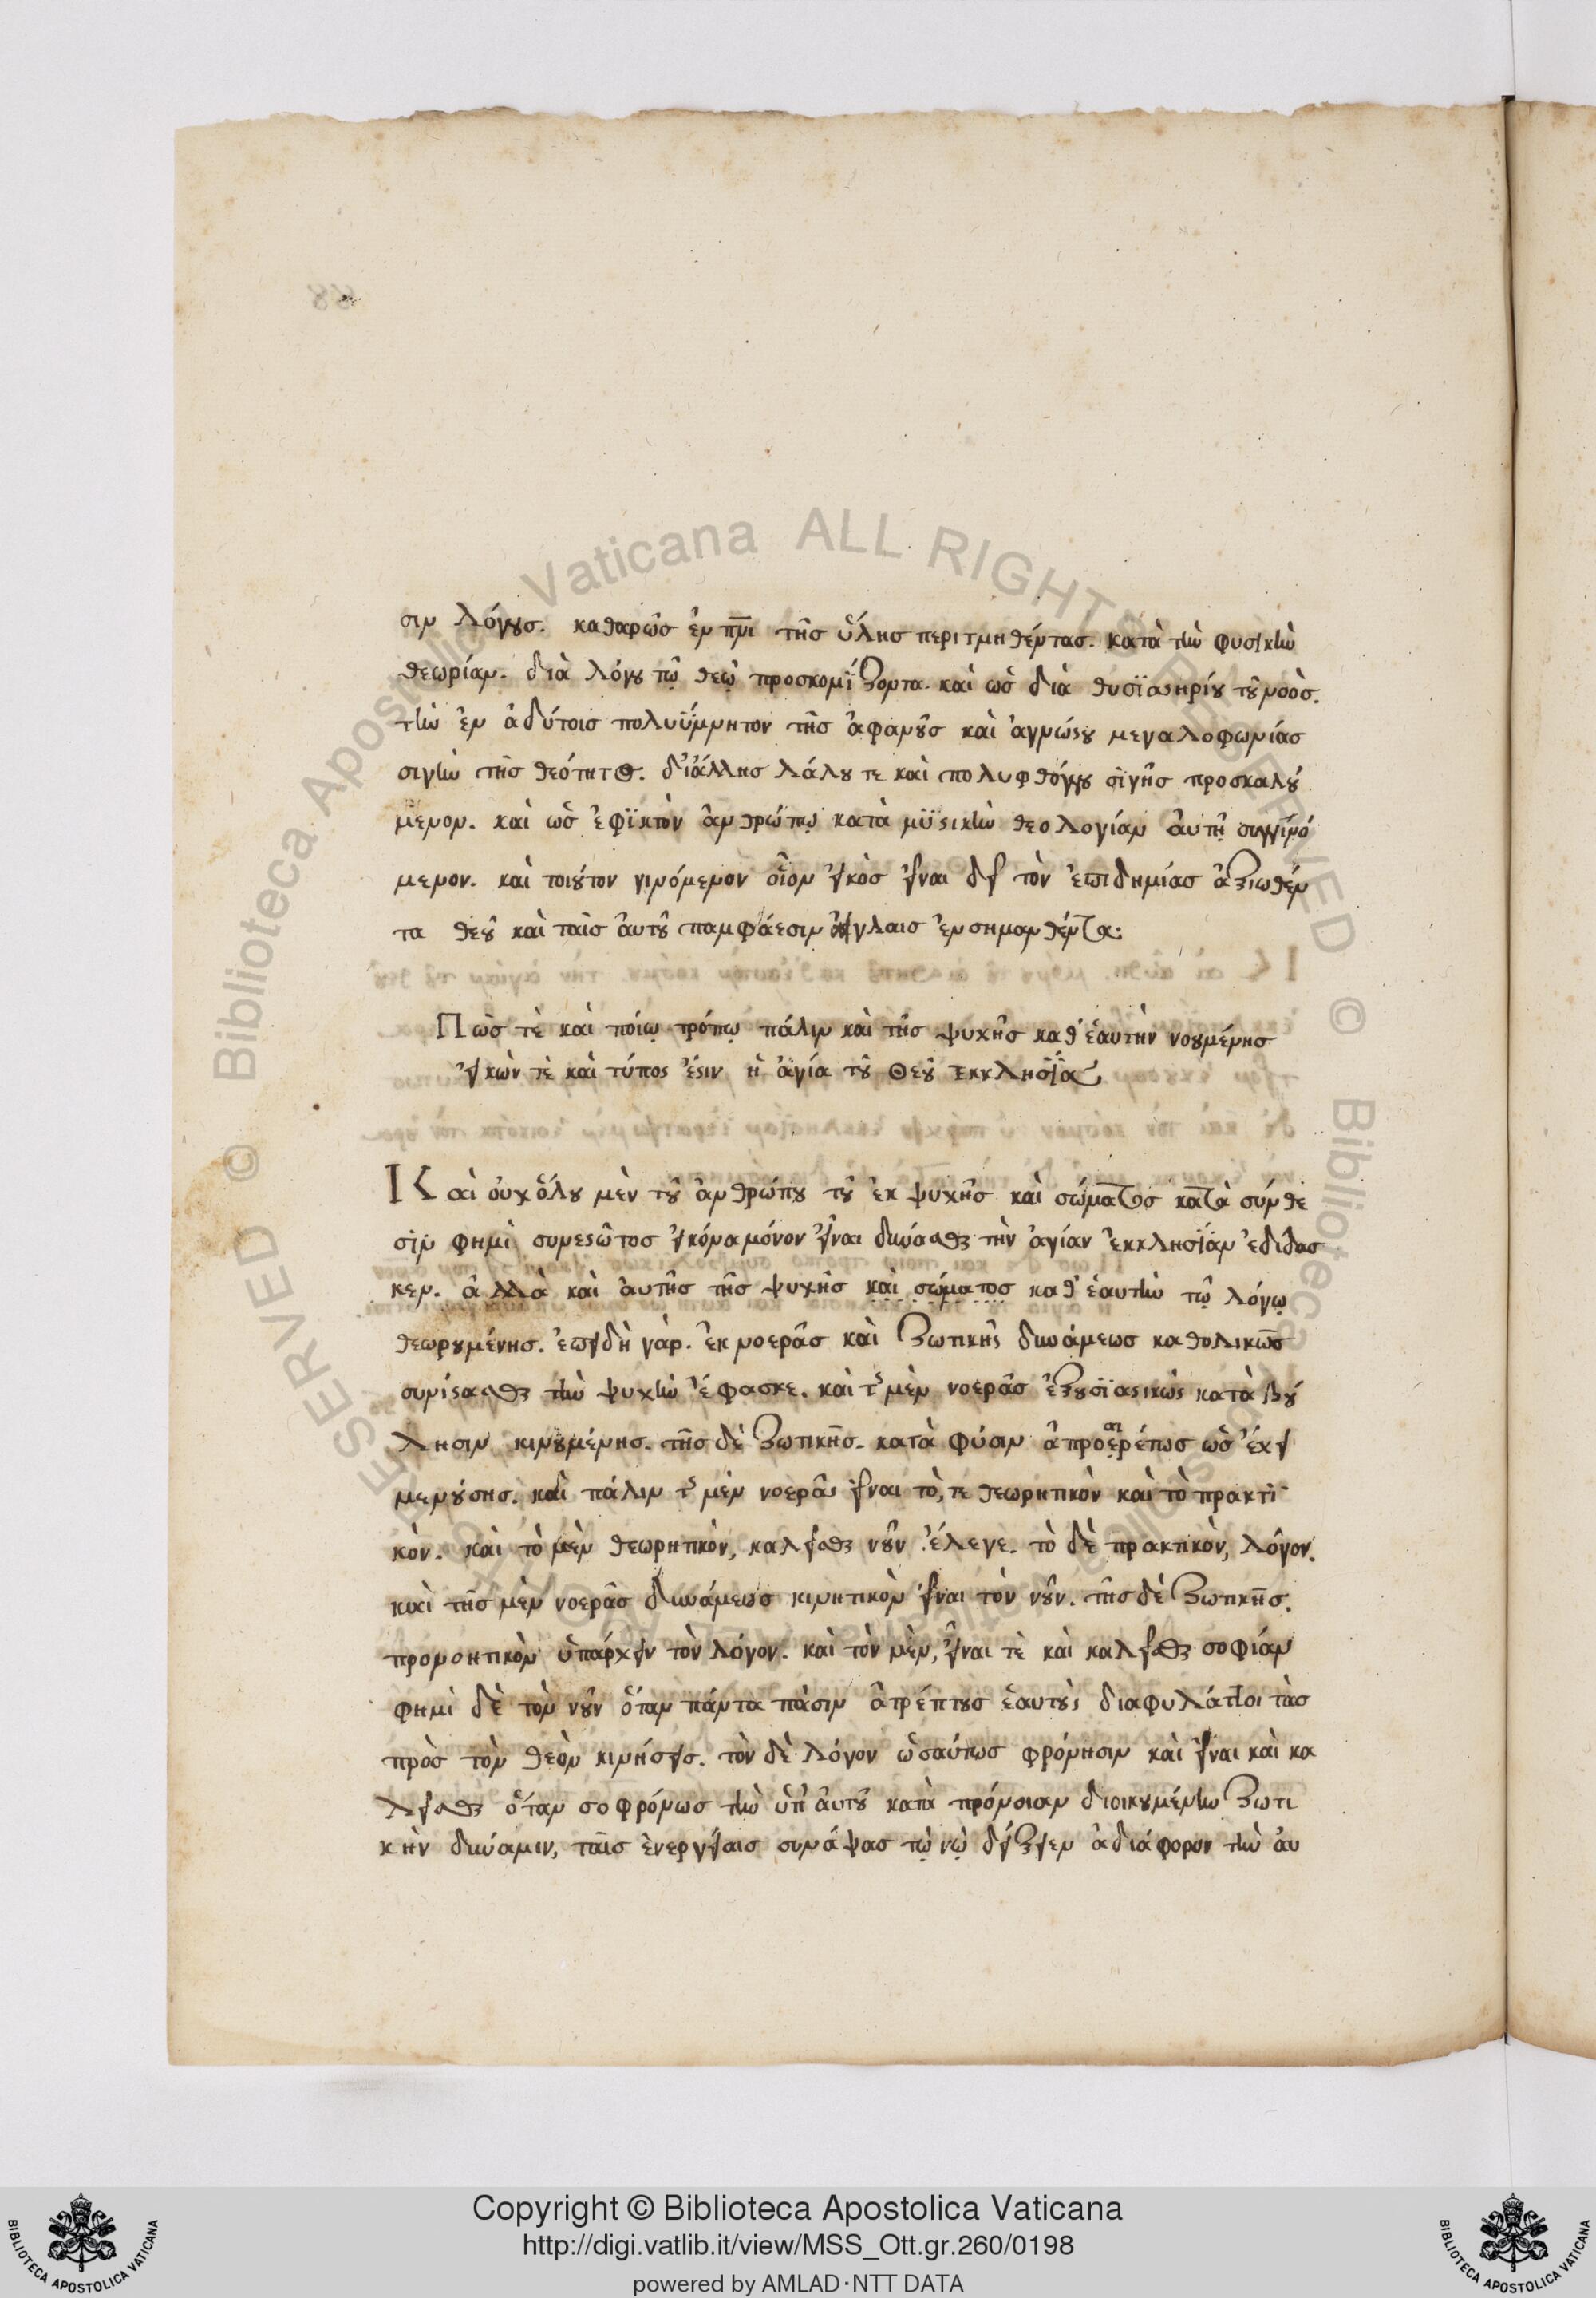 σιν λόγους. καθαρῶς ἐν πνι τῆς ὕλης περιτμηθέντας. κατὰ τὴν φυσικὴν
θεωρίαν. διὰ λόγου τῷ θεῷ προσκομίζοντα. καὶ ὡς διὰ θυσϊαστηρίου τοῦ νοὸς.
τὴν ἐν ἀδύτοις πολυΰμνητον τῆς ἀφανοῦς καὶ ἀγνώστου μεγαλοφωνίας
σιγὴν τῆς θεότητος. δι᾽ἄλλης λάλου τε καὶ πολυφθόγγου σιγῆς προσκαλού
μενον. καὶ ὡς ἐφϊκτὸν ἀνθρώπῳ κατὰ μϋστικὴν θεολογίαν αὐτῇ συγγινό
μενον. καὶ τοιοῦτον γινόμενον οἷον εἰκὸς εἶναι δεῖ τὸν ἐπιδημίας ἀξιωθέν
τα θεοῦ καὶ ταῖς αὐτοῦ παμφάεσιν αἴγλαις ἐνσημανθέντα:
Πῶς τὲ καὶ ποίῳ τρόπῳ πάλιν καὶ τῆς ψυχῆς καθ᾽ ἑαυτὴν νοουμένης
εἰκὼν τὲ καὶ τύπος ἐστιν ἡ ἁγία τοῦ Θεοῦ Ἐκκλησΐα
Καὶ οὐχ ὅλου μὲν τοῦ ἀνθρώπου τοῦ ἐκ ψυχῆς καὶ σώματος κατὰ σύνθε
σιν φημὶ συνεστῶτος εἰκόνα μόνον εἶναι δύνασθαι τὴν ἁγίαν ἐκκλησΐαν ἐδίδασ
κεν. ἀλλὰ καὶ αὐτῆς τῆς ψυχῆς καὶ σώματος καθ᾽ ἑαυτὴν τῷ λόγῳ
θεωρουμένης. ἐπειδὴ γὰρ. ἐκ νοερᾶς καὶ ζωτικῆς δυνάμεως καθολικῶς
συνίστασθαι τὴν ψυχὴν ἔφασκε. καὶ τῆς μὲν νοερᾶς ἐξουσϊαστικῶς κατὰ βού
λησιν κινουμένης. τῆς δὲ ζωτικῆς. κατὰ φύσιν ἀπροαιρέτως ὡς ἔχει
μενούσης. καὶ πάλιν τῆς μὲν νοερᾶς εἶναι τὸ, τε θεωρητικὸν καὶ τὸ πρακτι
κὸν. καὶ τὸ μὲν θεωρητικὸν, καλεῖσθαι νοῦν ἔλεγε. τὸ δὲ πρακτικὸν, λόγον.
καὶ τῆς μὲν νοερᾶς δυνάμεως κινητικὸν εἶναι τὸν νοῦν. τῆς δὲ ζωτικῆς.
προνοητικὸν ὑπάρχειν τὸν λόγον. καὶ τὸν μὲν, εἶναι τὲ καὶ καλεῖσθαι σοφίαν
φημὶ δὲ τὸν νοῦν ὅταν πάντα πάσιν ἀτρέπτους ἑαυτοὺς διαφυλάττοι τὰς
πρὸς τὸν θεὸν κινήσεις. τὸν δὲ λόγον ὡσαύτως φρόνησιν καὶ εἶναι καὶ κα
λεῖσθαι ὅταν σοφρόνως τὴν ὑπ᾽ αὐτοῦ κατὰ πρόνοιαν διοικουμένην ζωτι
κὴν δύναμιν, ταῖς ἐνεργείαις συνάψας τῷ νῷ δείξειεν ἀδιάφορον τὴν αὐ